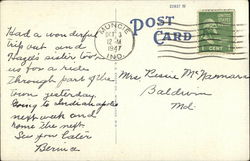 MUNCIE
OCT 3
12 - M
1947
IND.
POST
CARD
1 CENT
Had a wonderful
trip out and
sister took
us for a ride
through part of the
town yesterday.
Going to
next week and
home the next.
See you later
Bernice
Mrs Bessie McNamara
Baldwin
Md.